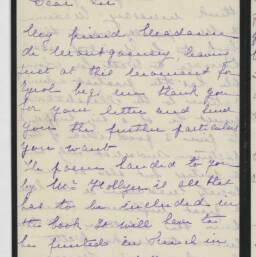 Dear Sir
My friend Madame
de Montgomery, leaving
just at this moment for
Tyrol begs me thank you
for your letter and send
you the further particulars
you want
The poem handed to you
by Mr Hollyer is all that
has to be included in
the book. It will have to
be printed in